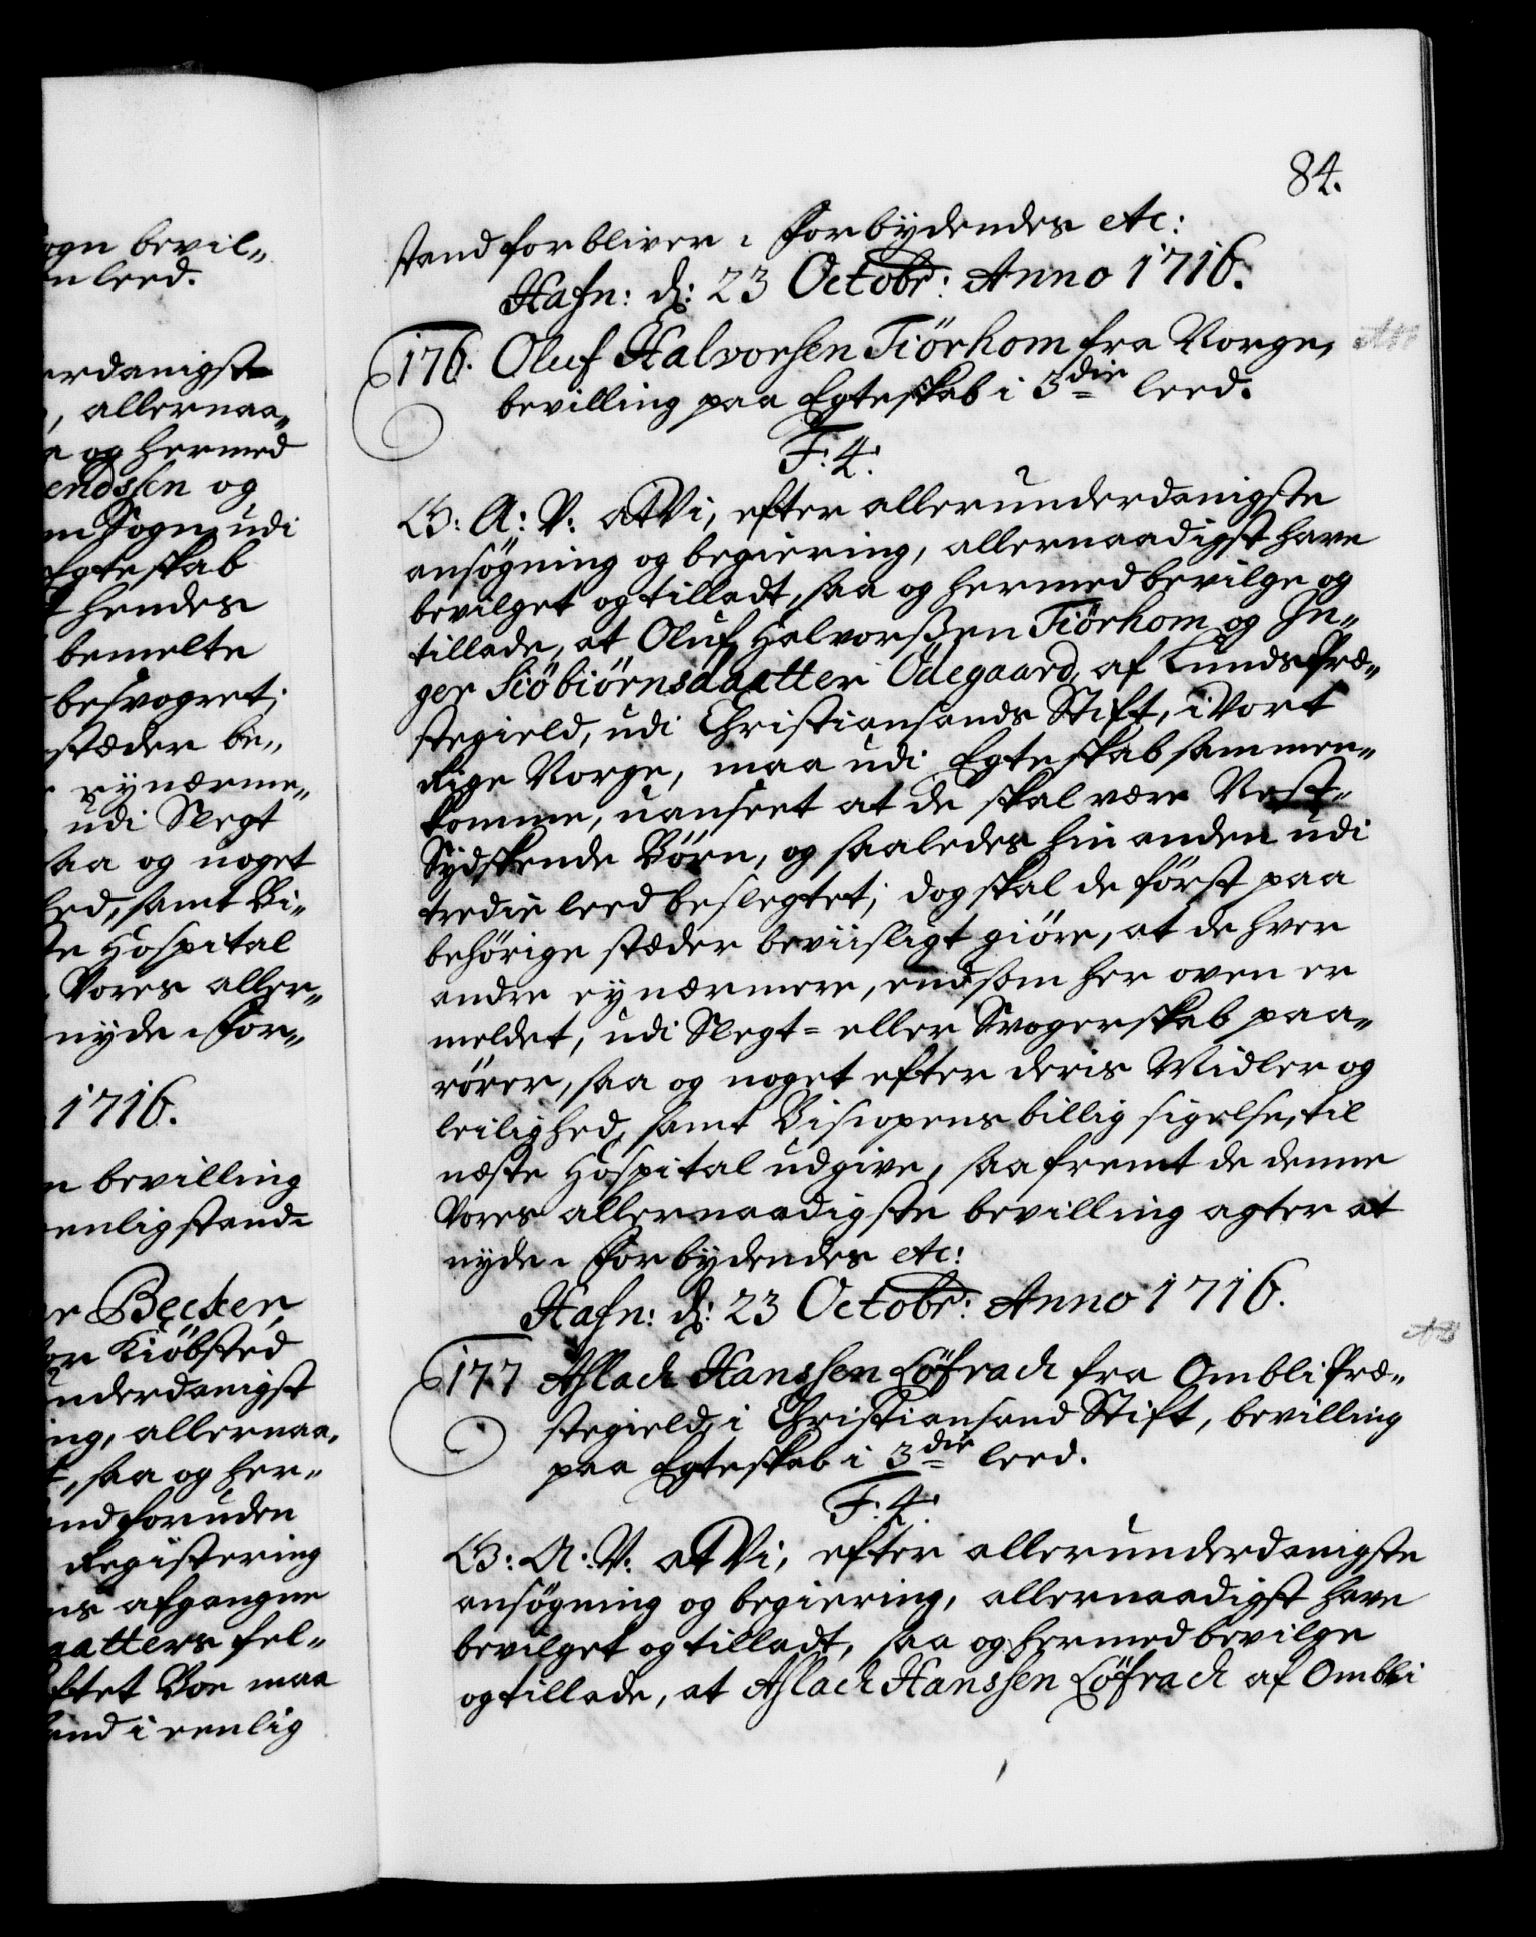 ogn bevil-
n leed.
erdanigst
, allernaa-
a og hermed
endssen og
m Sogn, udi
Egteskab
t hendes
bemelte
besvogret;
stæder be-
eynærme-
udi Slegt
saa og noget
hed, samt Bi-
te Hospital
Vores aller-
nyde. For-
1716.
n bevilling
eenlig stand
er Becker,
or Kiöbsted
underdanigst
ing, allernaa-
t, saa og her-
end foruden
Registering
ns afgangne
aatters fel-
ftet Boe maa
end i eenlig
84.
stand forbliver. Forbydendes etc:
Hafn: d: 23 Octobr: Anno 1716.
176. Oluf Halvorsen Tiörhom fra Norge,
bevilling paa Egteskab i 3die leed.
F: 4.
G: A: V: at Vi, efter allerunderdanigste
ansögning og begiering, allernaadigst have
bevilget og tilladt, saa og hermed bevilge og
tillade, at Oluf Halvorssen Tiörhom og In-
ger Siöbiörnsdaatter Ödegaard, af Lunds Præ-
stegield, udi Christiansands Stift, i Vort
Rige Norge, maa udi Egteskab sammen-
komme, uanseet at de skal være Nest-
Sydskende Börn, og saaledes hin anden udi
tredie leed beslegtet; dog skal de först paa
behörige stæder beviisligt giöre, at de hver
andre ey nærmere, end som her oven er
meldet, udi Slegt- eller Svogerskab paa-
rörer, saa og noget efter deris Midler og
leilighed, samt Biscopens billig sigelse, til
næste Hospital udgive, saafremt de denne
Vores allernaadigste bevilling agter at
nyde. Forbydendes etc:
Hafn: d: 23 Octobr: Anno 1716.
177 Aslach Hanssen Löfrach fra Ombli Præ-
stegield, i Christiansand Stift, bevilling
paa Egteskab i 3die leed.
F: 4.
G: A: V: at Vi, efter allerunderdanigste
ansögning og begiering, allernaadigst have
bevilget og tilladt, saa og hermed bevilge
og tillade, at Aslach Hanssen Löfrach af Ombli